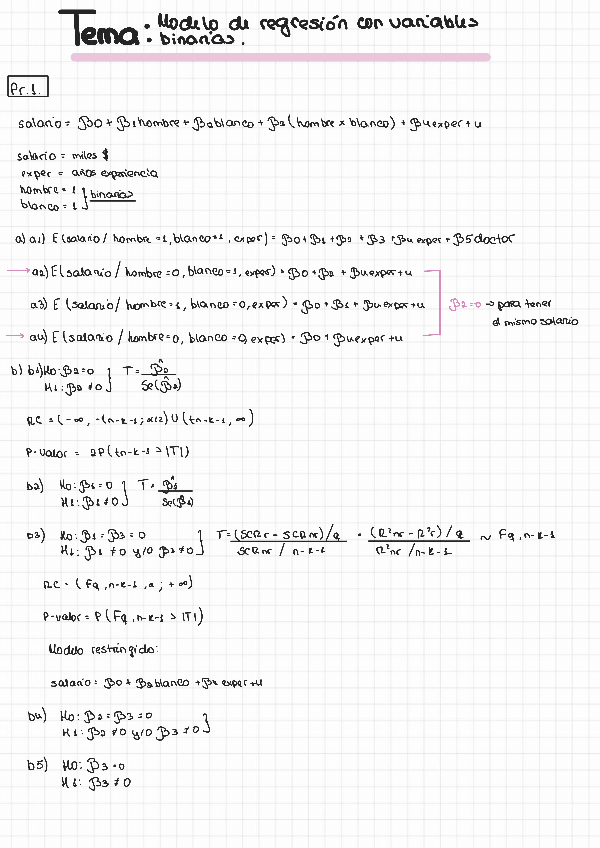 Tema: Modelo de regresión con variables
binarias.
Pr.1.
salario = β0 + β1hombre + β2blanco + β3(hombre x blanco) + β4exper + u
salario = miles $
exper = años experiencia
hombre = 1
blanco = 1 } binarias
a) a1) E(salario / hombre = 1, blanco = 1, exper) = β0 + β1 + β2 + β3 + β4 exper + β5doctor
→ a2) E(salario / hombre = 0, blanco = 1, exper) = β0 + β2 + β4exper + u
a3) E(salario / hombre = 1, blanco = 0, exper) = β0 + β1 + β4exper + u
β2 = 0 → para tener
el mismo salario
→ a4) E(salario / hombre = 0, blanco = 0, exper) = β0 + β4exper + u
b) b1) H0: β2 = 0 } T = β̂2 / Se(β̂2)
H1: β2 ≠ 0
RC = (-∞, -tn-k-1; α/2) U (tn-k-1, ∞)
P-valor = 2P(tn-k-1 > |T|)
b2) H0: β1 = 0 } T = β̂1 / Se(β̂1)
H1: β1 ≠ 0
b3) H0: β1 = β3 = 0 } T = (SCRr - SCRnr)/q / SCRnr / n-k-1 = (R²nr - R²r)/q / R²nr / n-k-1 ~ Fq, n-k-1
H1: β1 ≠ 0 y/o β3 ≠ 0
RC = (Fq, n-k-1, α; +∞)
P-valor = P(Fq, n-k-1 > |T|)
Modelo restringido:
salario = β0 + β2blanco + β4 exper + u
b4) H0: β2 = β3 = 0
H1: β2 ≠ 0 y/o β3 ≠ 0 }
b5) H0: β3 = 0
H1: β3 ≠ 0